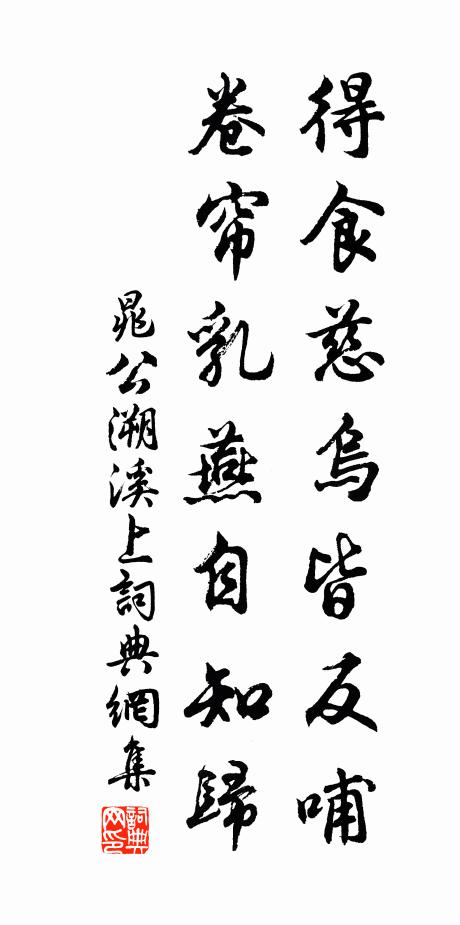 得食慈烏皆反哺
卷帘乳燕自知歸
晁公溯溪上詞典網集
詞典网印